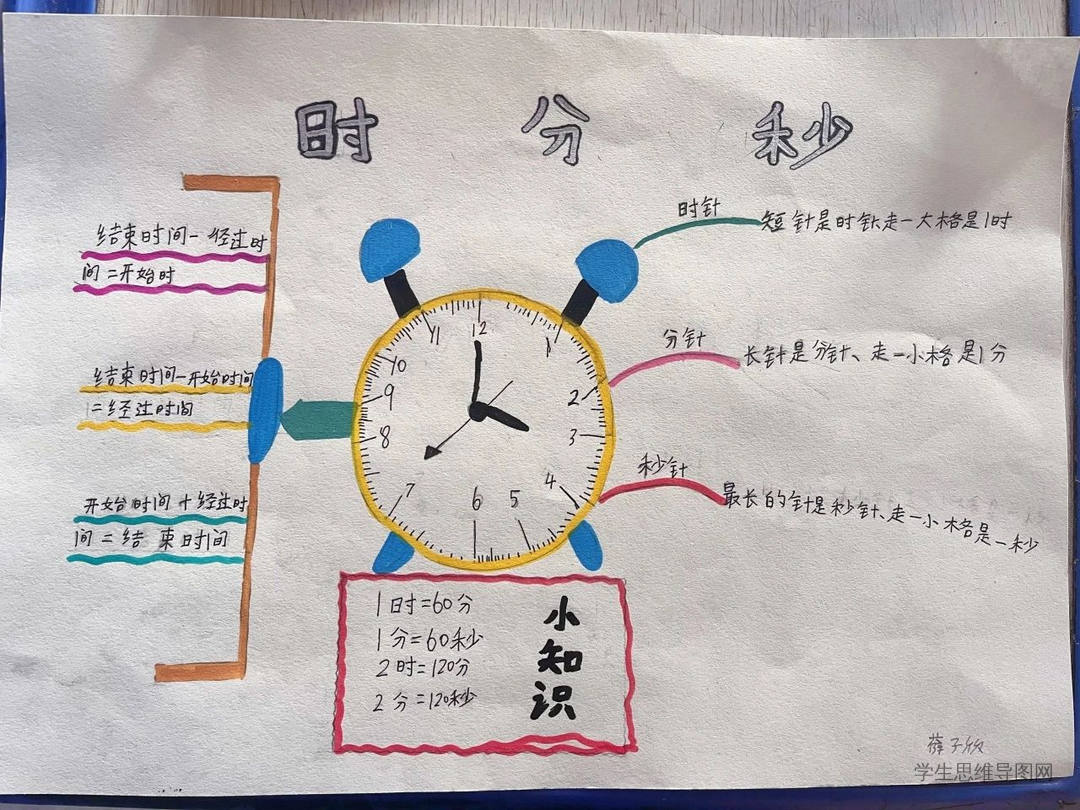 时 分 秒
结束时间-经过时
间=开始时
结束时间-开始时间
=经过时间
开始时间+经过时
间=结束时间
12
1
2
3
4
5
6
7
8
9
10
11
时针
短针是时针走一大格是1时
分针
长针是分针、走一小格是1分
秒针
最长的针是秒针、走一小格是一秒
小知识
1时=60分
1分=60秒
2时=120分
2分=120秒
学生思维导图网